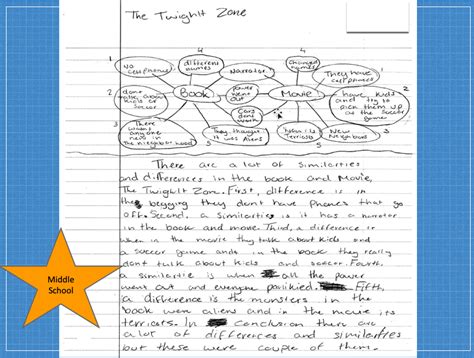 The Twighlt Zone
4
4
No cellphones
different names
Narrator
Changed names
They have cellphones
1
1
2
dont talk about kids or soccer
Book
power went out
Movie
have kids and try to pick them up at the soccer game
2
Cars dont work
3
There wasnt any one new in the nieghborhood
They thought it was Aliens
New Neighbors
3
5
5
There are a lot of similarities
and differences in the book and Movie,
The Twighlt Zone. First, difference is in
the begging they dont have phones that go
off. Second, a similarities is it has a narrator
in the book and movie. Third, a difference is
when in the movie they talk about kids and
a soccer game and in the book they really
dont talk about kids and soccer. Fourth,
a similartie is when all the power
went out and everyone panikied. Fifth,
a difference is the monsters in the
book were aliens and in the movie its
terricts. In conclusion there are
a lot of differences and similarities
but these were couple of them.
Middle
School